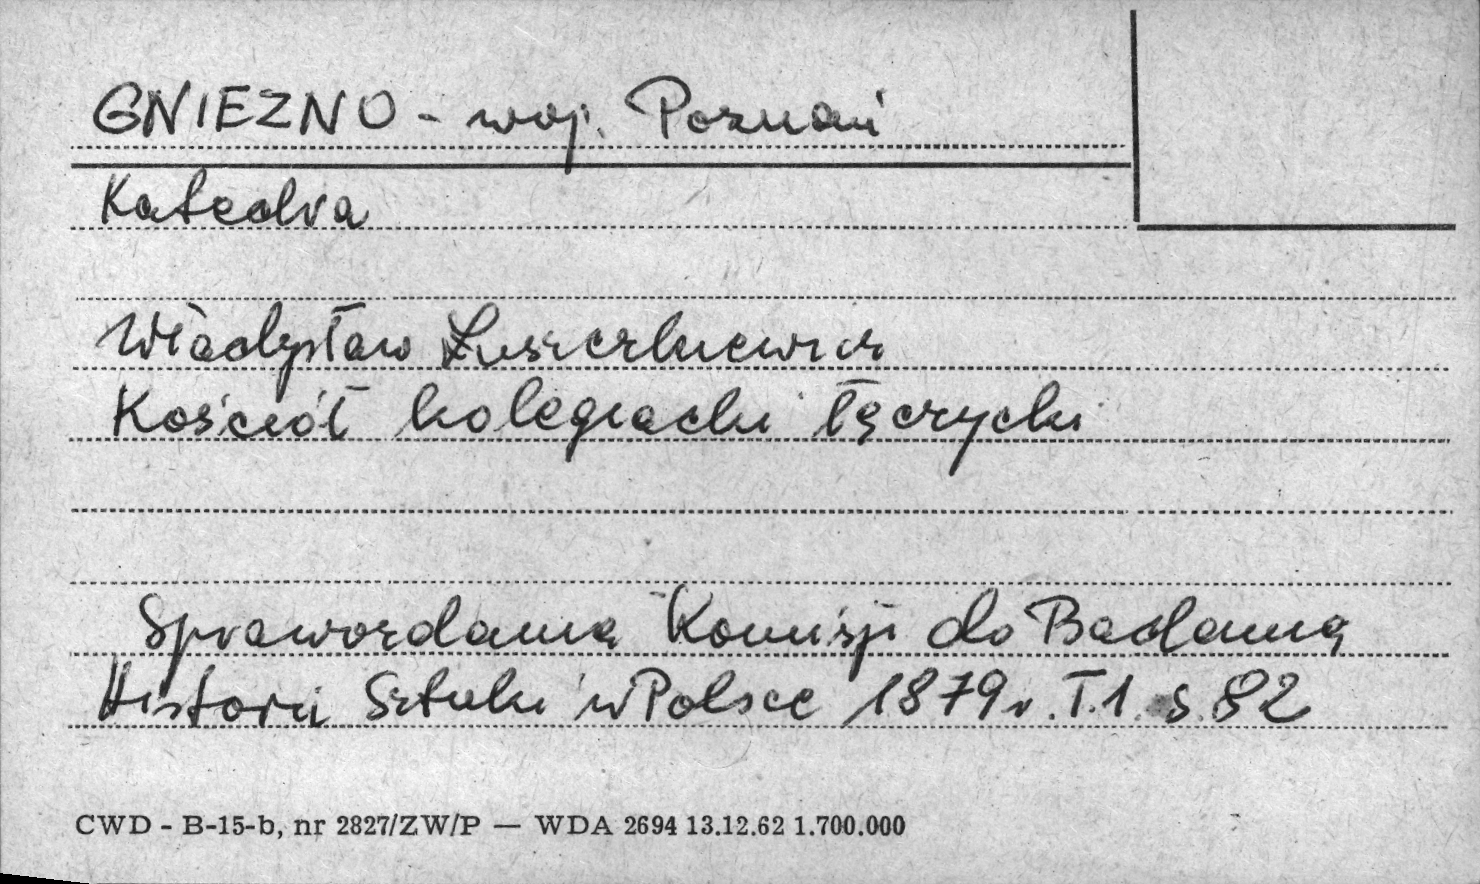 GNIEZNO - woj. Poznań
Katedra
Władysław Łuszczkiewicz
Kościół kolegiacki łęczycki
Sprawozdania Komisji do Badania
Historii Sztuki w Polsce 1879 r. T.1. s. 82
CWD - B-15-b, nr 2827/ZW/P — WDA 2694 13.12.62 1.700.000